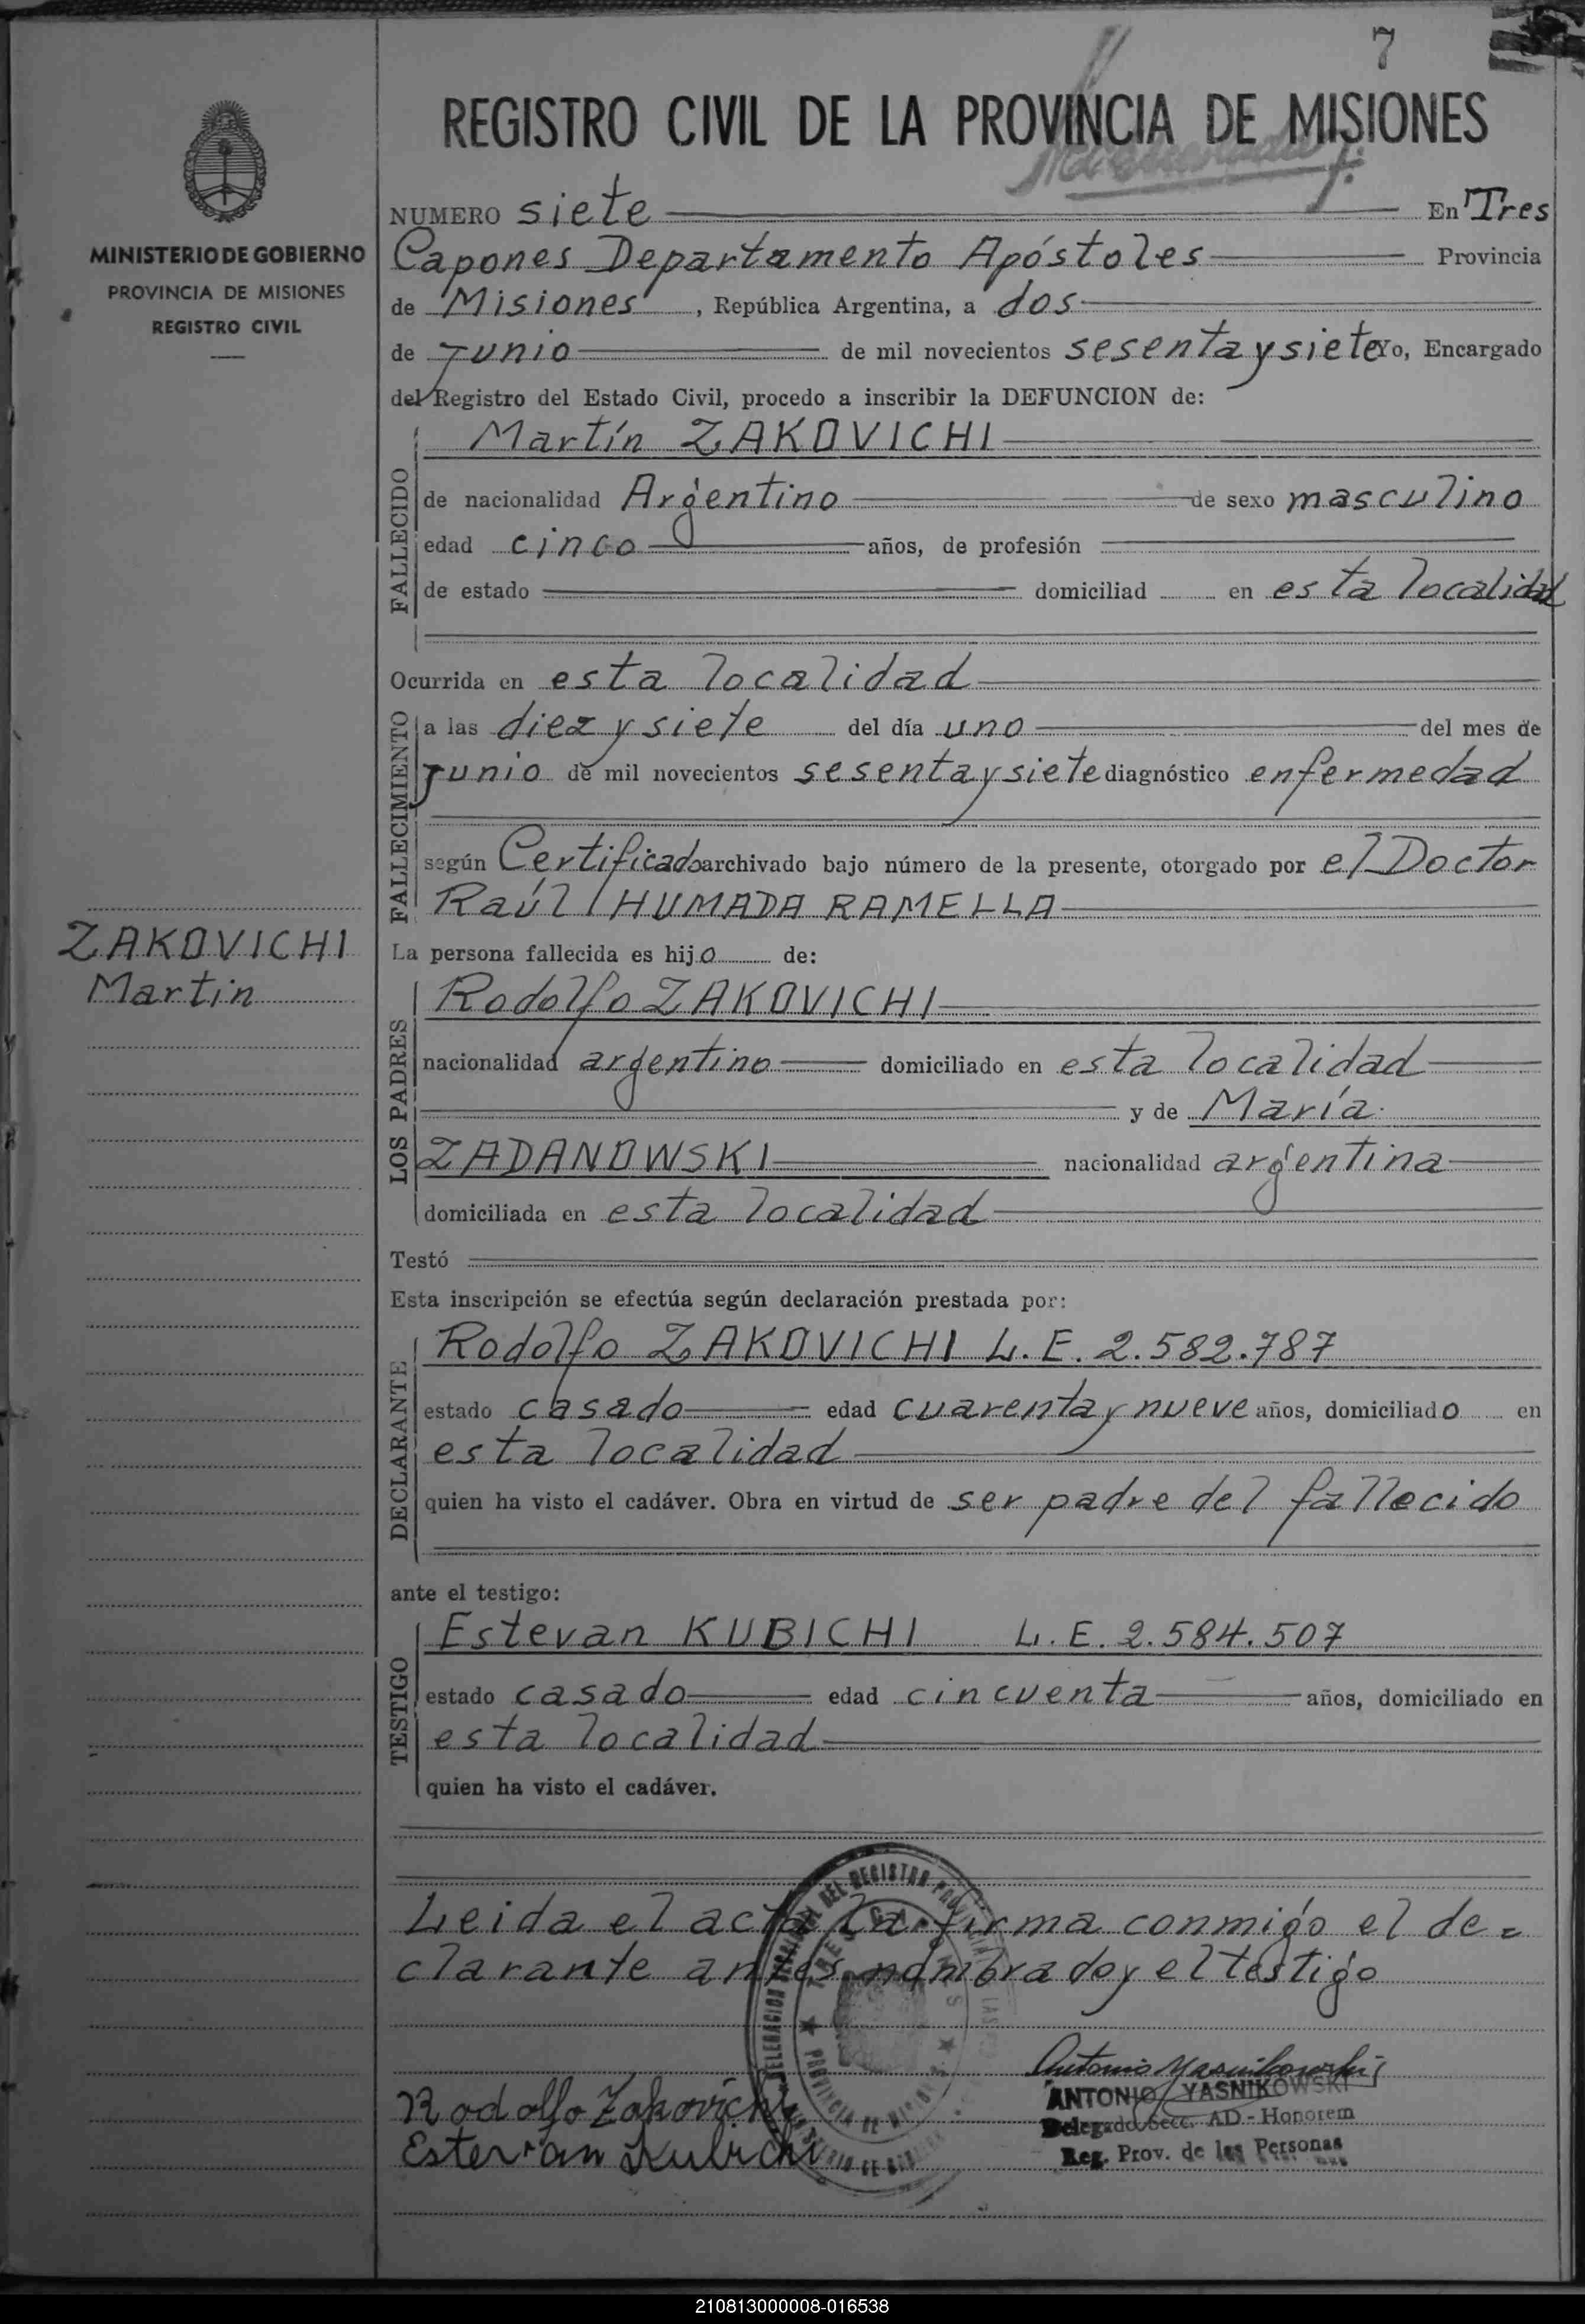 7
REGISTRO CIVIL DE LA PROVINCIA DE MISIONES
MINISTERIO DE GOBIERNO
PROVINCIA DE MISIONES
REGISTRO CIVIL
NUMERO siete En Tres
Capones Departamento Apóstoles Provincia
de Misiones, República Argentina, a dos
de Junio de mil novecientos sesenta y siete Yo, Encargado
del Registro del Estado Civil, procedo a inscribir la DEFUNCION de:
FALLECIDO
Martín ZAKOVICHI
de nacionalidad Argentino de sexo masculino
edad cinco años, de profesión
de estado domiciliad en esta localidad
Ocurrida en esta localidad
FALLECIMIENTO
a las diez y siete del día uno del mes de
Junio de mil novecientos sesenta y siete diagnóstico enfermedad
según Certificado archivado bajo número de la presente, otorgado por el Doctor
Raúl HUMADA RAMELLA
ZAKOVICHI
Martin
La persona fallecida es hijo de:
LOS PADRES
Rodolfo ZAKOVICHI
nacionalidad argentino domiciliado en esta localidad
y de María
ZADANOWSKI nacionalidad argentina
domiciliada en esta localidad
Testó
Esta inscripción se efectúa según declaración prestada por:
DECLARANTE
Rodolfo ZAKOVICHI L. E. 2.582.787
estado casado edad cuarenta y nueve años, domiciliado en
esta localidad
quien ha visto el cadáver. Obra en virtud de ser padre del fallecido
ante el testigo:
TESTIGO
Estevan KUBICHI L. E. 2.584.507
estado casado edad cincuenta años, domiciliado en
esta localidad
quien ha visto el cadáver.
Leida el acta la firma conmigo el de=
clarante antes nombrado y el testigo
Antonio Yasnikowski
ANTONIO YASNIKOWSKI
Delegado Secc. AD-Honorem
Reg. Prov. de las Personas
Rodolfo Zakovichi
Estevan Kubichi
210813000008-016538